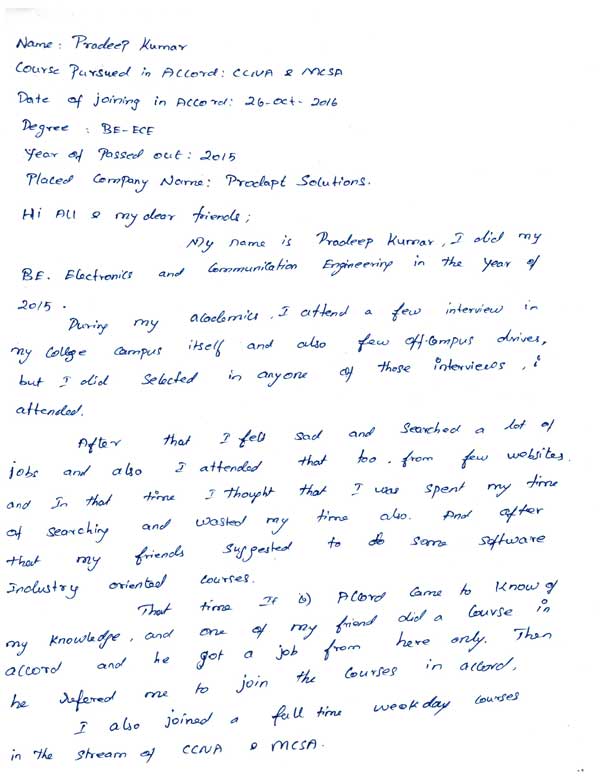 Name: Pradeep Kumar
Course Pursued in Accord: CCNA & MCSA
Date of joining in Accord: 26-oct-2016
Degree : BE-ECE
Year of Passed out: 2015
Placed Company Name: Prodapt Solutions.
Hi All & my dear friends;
My name is Pradeep Kumar, I did my
BE. Electronics and Communication Engineering in the year of
2015.
During my academics, I attend a few interview in
my College campus itself and also few off-campus drives,
but I did selected in anyone of those interviews, i
attended.
After that I felt sad and searched a lot of
jobs and also I attended that too. from few websites.
and In that time I thought that I was spent my time
of searching and wasted my time also. And after
that my friends suggested to do some software
Industry oriented courses.
That time It is) Accord came to know of
my knowledge, and one of my friend did a course in
accord and he got a job from here only. Then
he refered me to join the courses in accord.
I also joined a full time weekday courses
in the stream of CCNA & MCSA.